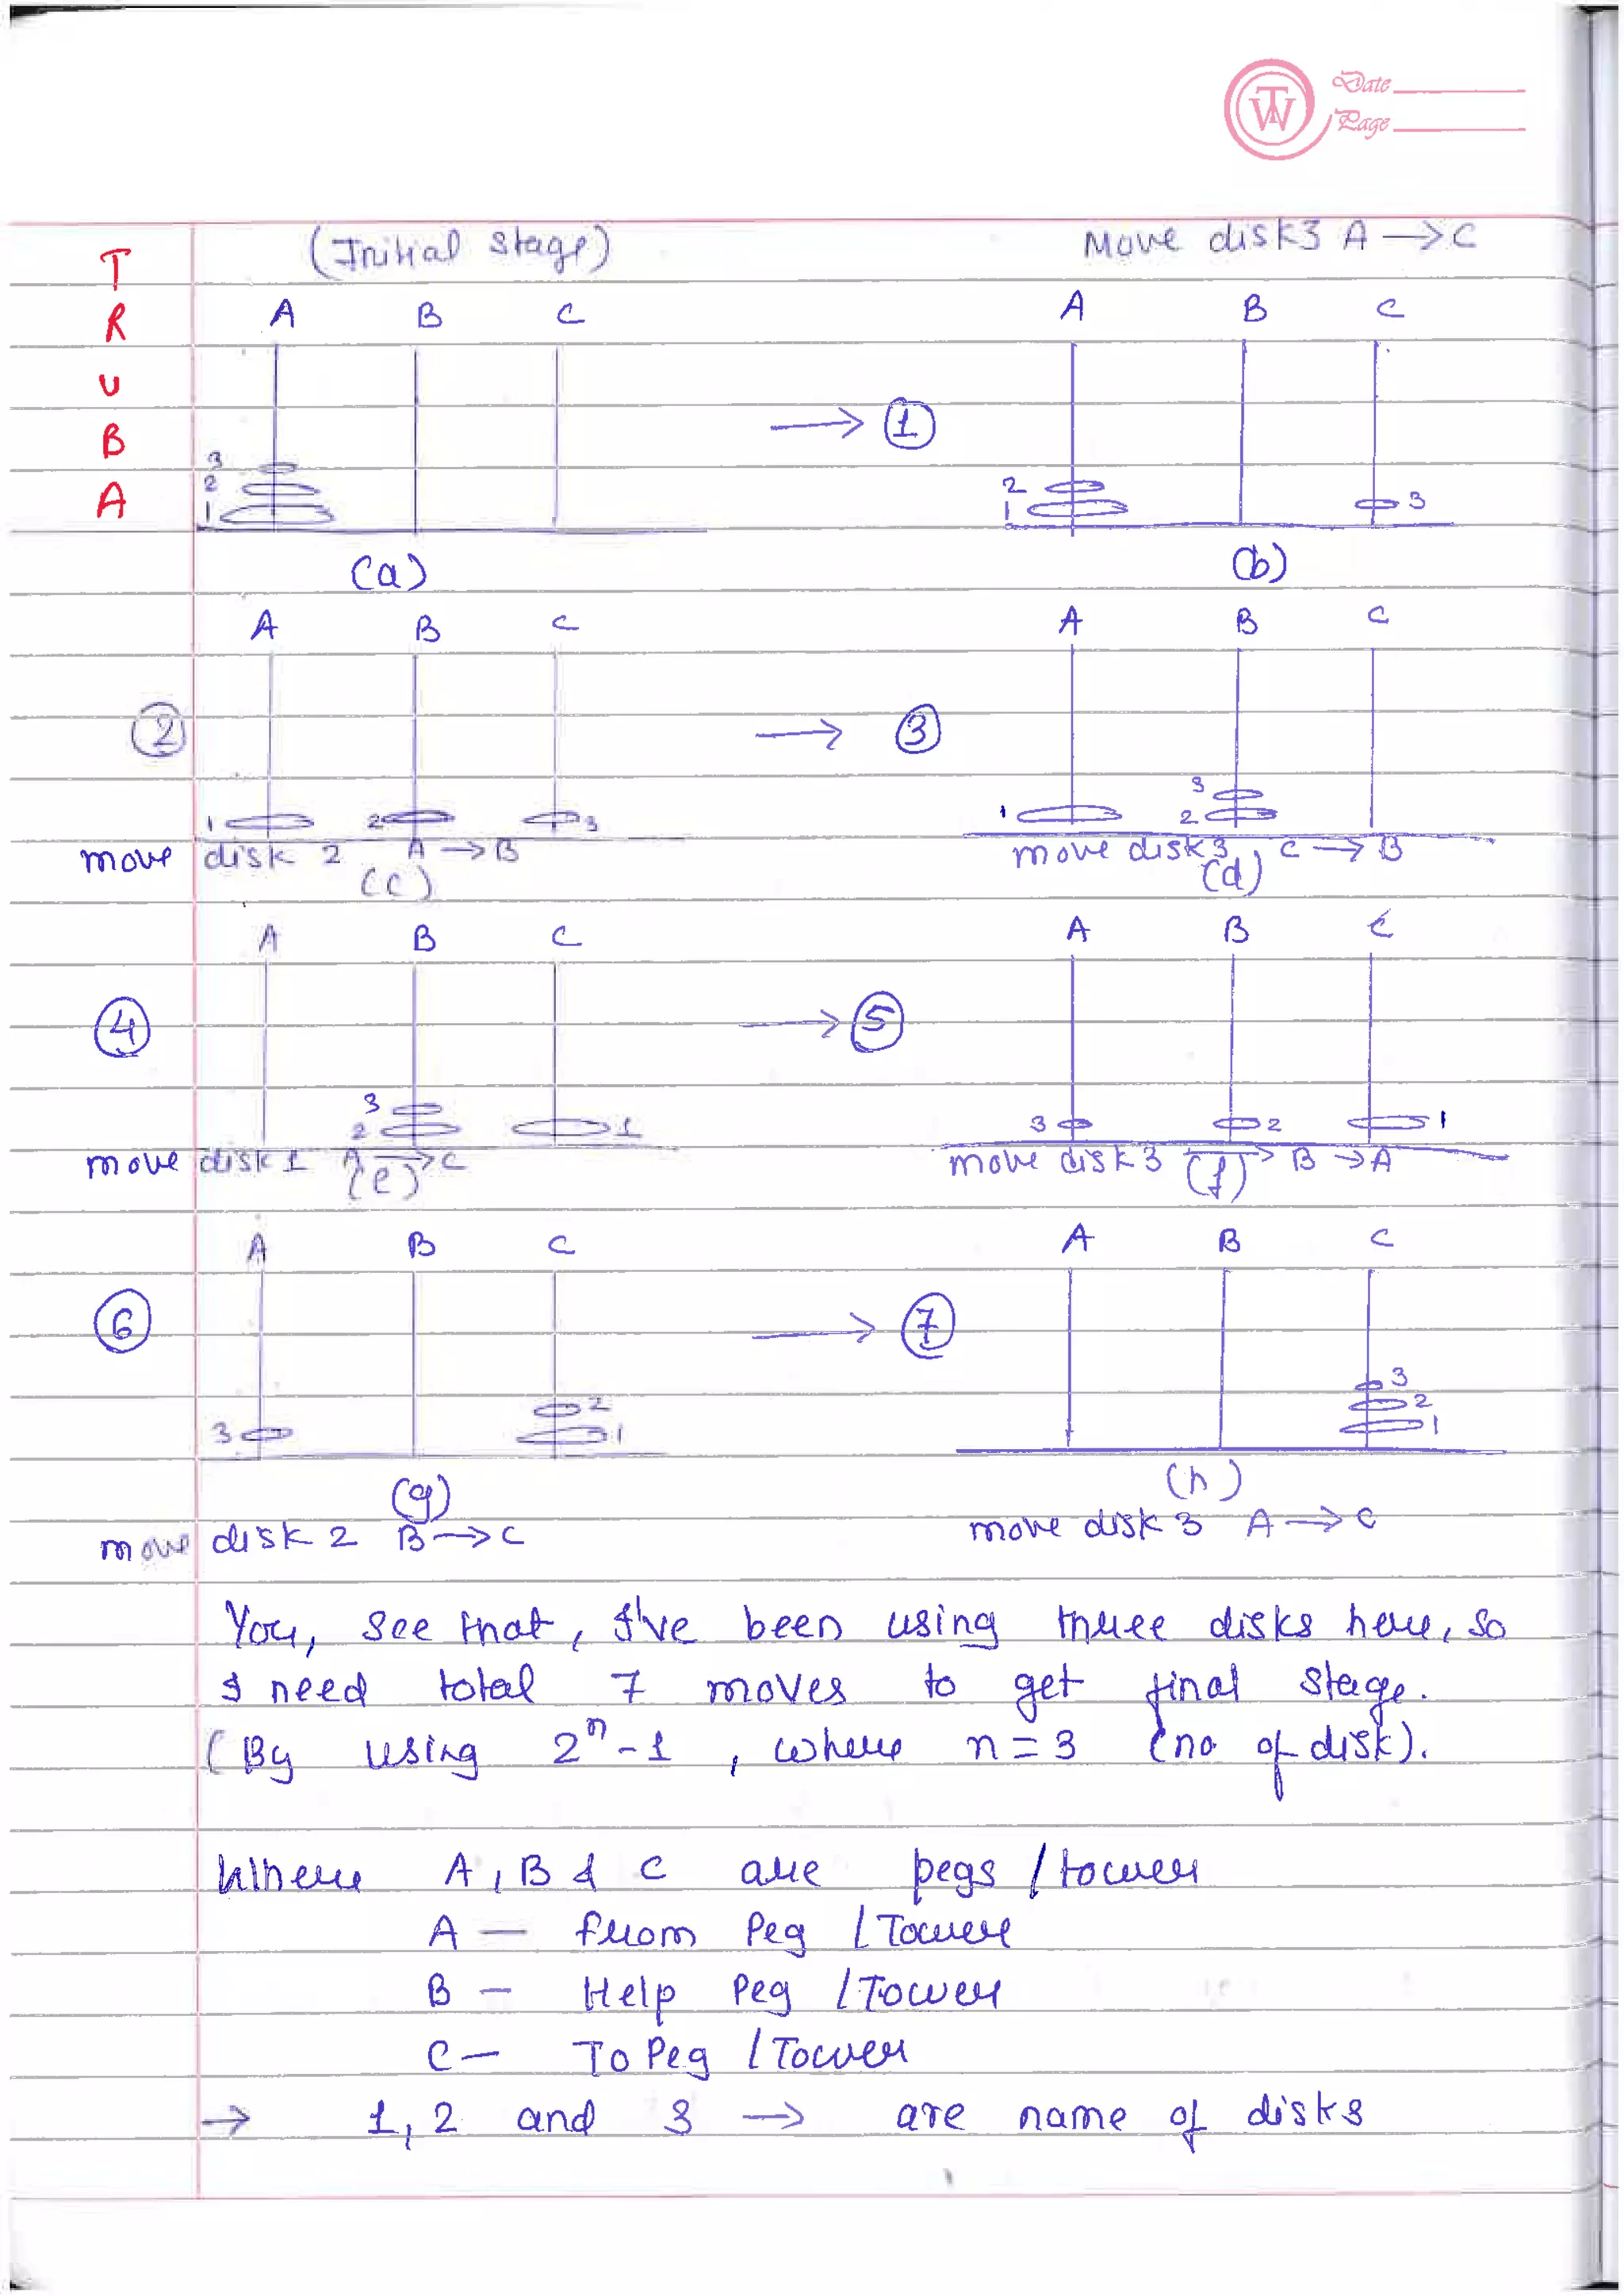 Date
Page
TW
T
R
U
B
A
(Initial stage)
Move disk3 A → C
A B C
→ 1
A B C
3
2
1
2
1
3
(a)
(b)
A B C
A B C
2
→ 3
1 2 3
3
1 2
move disk 2 A → B
move disk3, C → B
(c)
(d)
A B C
A B C
4
→ 5
3
2 1
3 2 1
move disk 1 A → C
move disk 3 → B → A
(e)
(f)
A B C
A B C
6
→ 7
2
3 1
3
2
1
(g)
(h)
move disk 2 B → C
move disk 3 A → C
You, see that, I've been using three disks here, so
I need total 7 moves to get final stage.
(By using 2ⁿ-1, where n = 3 (no of disk).
Where A, B & C are pegs / tower
A — from Peg / Tower
B — Help Peg / Tower
C — To Peg / Tower
→ 1, 2 and 3 → are name of disks